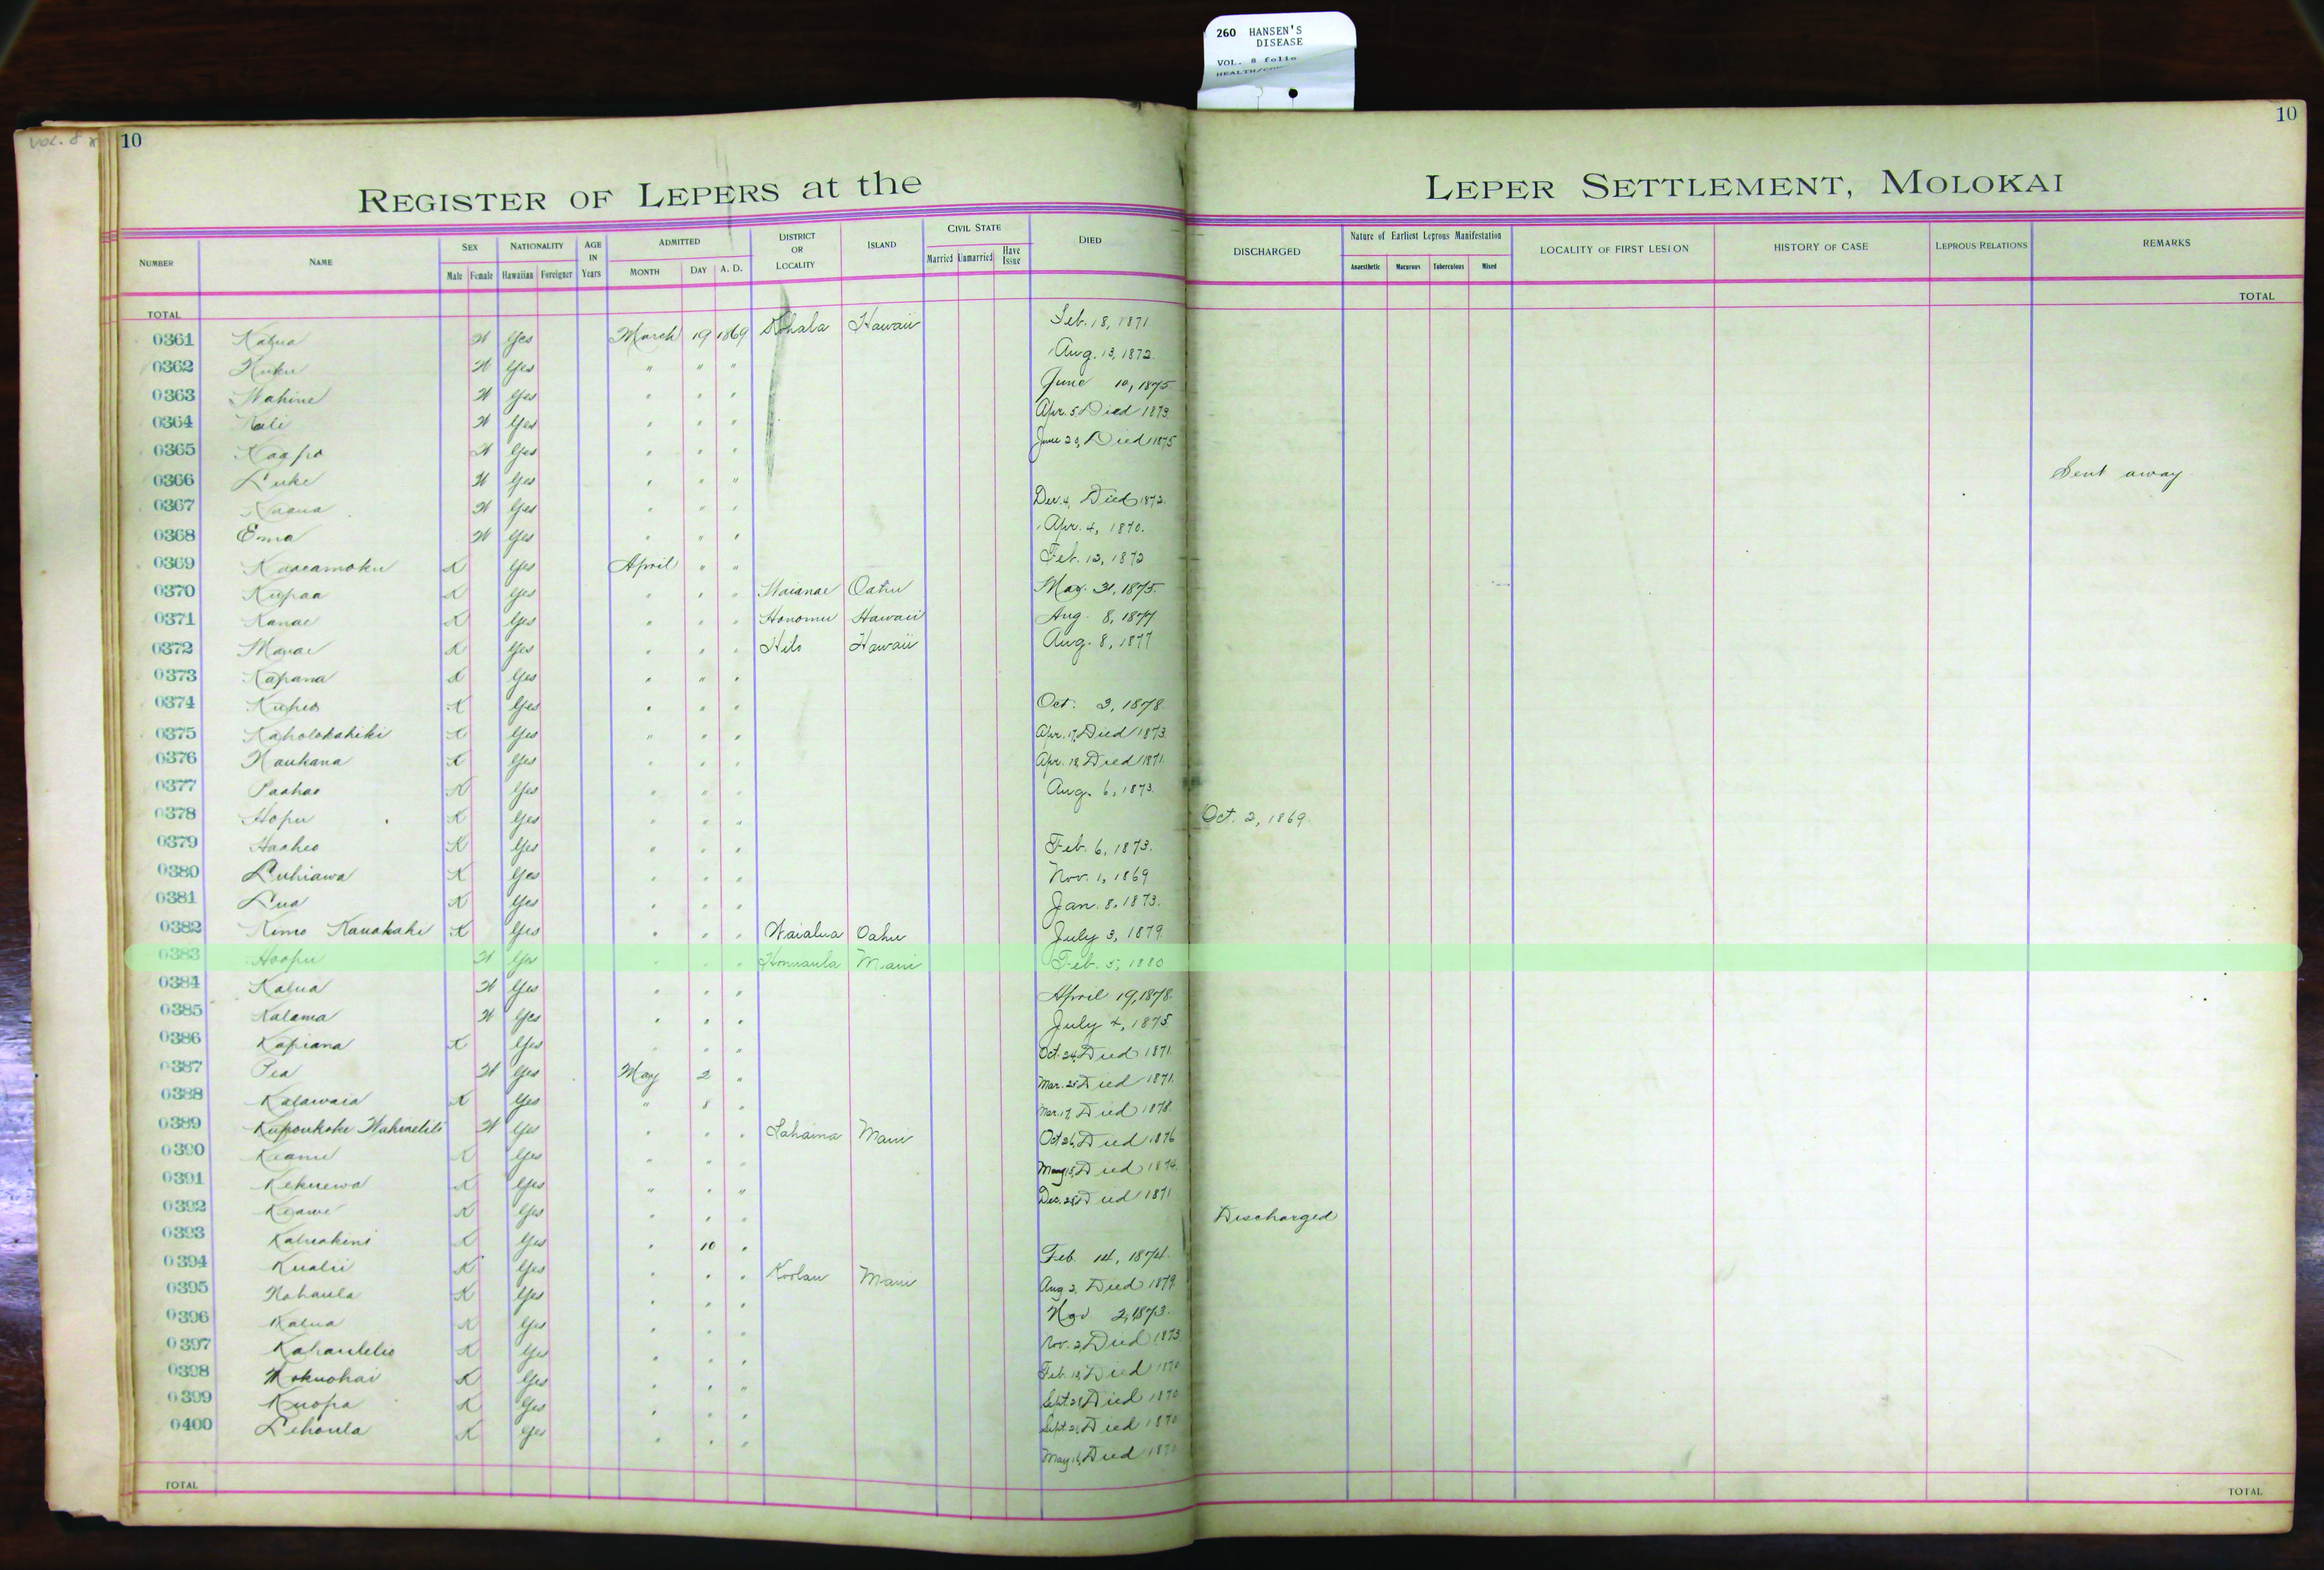 260 HANSEN'S
DISEASE
VOL. 8 folio
VOL. 8
10
10
REGISTER OF LEPERS at the LEPER SETTLEMENT, MOLOKAI
NUMBER NAME SEX NATIONALITY AGE IN Years ADMITTED DISTRICT OR LOCALITY ISLAND CIVIL STATE DIED DISCHARGED Nature of Earliest Leprous Manifestation LOCALITY OF FIRST LESION HISTORY OF CASE LEPROUS RELATIONS REMARKS
Male Female Hawaiian Foreigner MONTH DAY A. D. Married Unmarried Have Issue Anaesthetic Macurous Tuberculous Mixed
TOTAL TOTAL
0361 Kalua W Yes March 19 1869 Kohala Hawaii Feb. 18, 1871
0362 W Yes " " " Aug. 13, 1872.
0363 Wahine W Yes " " " June 10, 1875
0364 Kali W Yes " " " Apr. 5 Died 1873.
0365 Kaapo W Yes " " " June 20, Died 1875
0366 Luke W Yes " " " Sent away
0367 W Yes " " " Dec. 4, Died 1872.
0368 Emma W Yes " " " Apr. 4, 1870.
0369 Kaaeamoku K Yes April " " Feb. 12, 1872
0370 Kupaa K Yes " " " Waianae Oahu May. 31, 1875.
0371 Kanae K Yes " " " Honomu Hawaii Aug. 8, 1877
0372 K Yes " " " Hilo Hawaii Aug. 8, 1877
0373 Kapana K Yes " " "
0374 Kuheo K Yes " " " Oct. 3, 1878.
0375 Kaholokahiki K Yes " " " Apr. 17, Died 1873.
0376 Naukana K Yes " " " Apr. 18 Died 1871.
0377 Paahao K Yes " " " Aug. 6, 1873.
0378 Hopu K Yes " " " Oct. 2, 1869.
0379 Haaheo K Yes " " " Feb. 6, 1873.
0380 Luhiawa K Yes " " " Nov. 1, 1869
0381 Lua K Yes " " " Jan. 8, 1873.
0382 Kimo Kauakahi K Yes " " " Waialua Oahu July 3, 1879
0383 Hoopu W Yes " " " Honuaula Maui Feb. 5, 1880
0384 Kalua W Yes " " " April 19, 1878.
0385 Kalama W Yes " " " July 4, 1875
0386 Kapiana K Yes " " " Oct. 24, Died 1871.
0387 Pea W Yes May 2 " Mar. 25 Died 1871.
0388 Kalawaia K Yes " 8 " Mar. 17, Died 1878.
0389 Kupoukoke W Yes " " " Lahaina Maui Oct 26, Died 1876
0390 Keanu K Yes " " " May 15, Died 1874.
0391 Kekuewa K Yes " " " Dec. Died 1871
0392 Keawe K Yes " " " Discharged
0393 Kaluakini K Yes " 10 " Feb. 14, 1874.
0394 Kualii K Yes " " " Koolau Maui Aug 2, Died 1879.
0395 Nohaula K Yes " " " Nov 2, 1873.
0396 Kalua K Yes " " " Nov. 2, Died 1873
0397 Kahaulelio K Yes " " " Feb. 18, Died 1870
0398 Mokuohai K Yes " " " Sept. Died 1870
0399 Kuopa K Yes " " " Sept. Died 1870
0400 Lehoula K Yes " " " May 16, Died 1870
TOTAL TOTAL